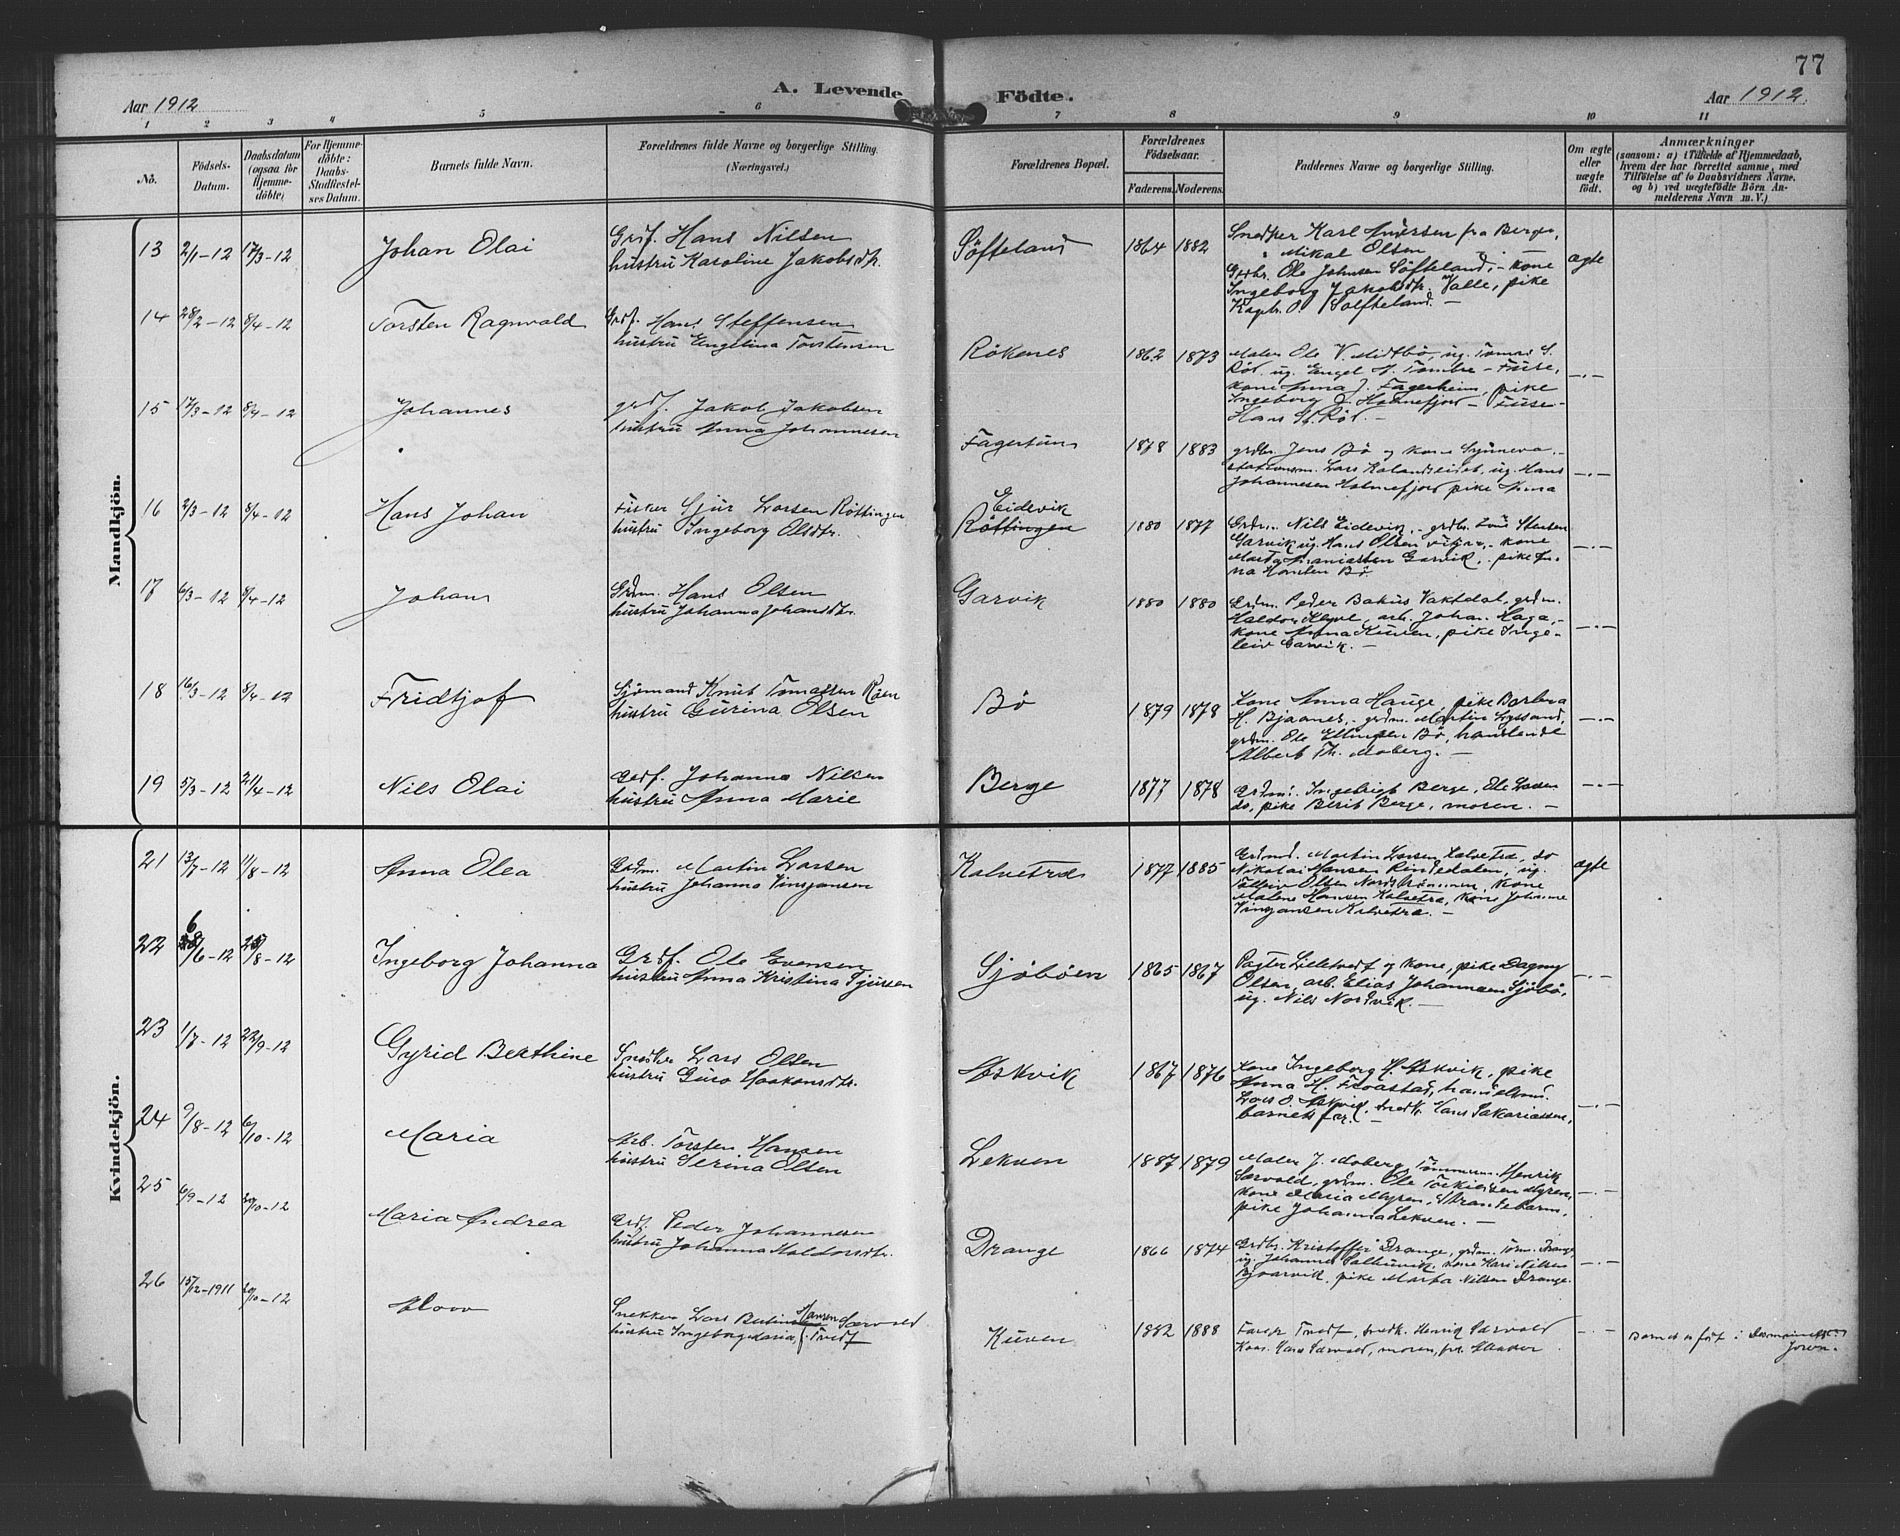 77
Aar 1912
A. Levende Födte.
Aar 1912.
1 2 3 4 5 6 7 8 9 10 11
No.
Födsels-Datum.
Daabsdatum (ogsaa for Hjemme-döbte)
For Hjemme-döbte: Daabs-Stadfæstel-ses Datum.
Barnets fulde Navn.
Forældrenes fulde Navne og borgerlige Stilling.
(Næringsvei.)
Forældrenes Bopæl.
Forældrenes Födselsaar.
Faderens. Moderens.
Faddernes Navne og borgerlige Stilling.
Om ægte eller uægte födt.
Anmærkninger
(saasom: a) i Tilfælde af Hjemmedaab, hvem der har forrettet samme, med Tilföielse af to Daabsvidners Navne, og b) ved uægtefödte Börn An-melderens Navn m. V.)
Mandkjön.
13 2/1-12 17/3-12 Johan Olai
Grdf. Hans Nilsen
hustru Karoline Jakobsdtr.
Söfteland 1864 1882
Snedker Karl Andersen fra Berge,
" Mikal Olsen
Ole Johnsen Söfteland, - kone
Ingeborg Jakobsdtr. Valle, pike
ægte
14 28/2-12 8/4-12 Torsten Ragnvald
Grdf. Hans Steffensen
hustru Engelina Torstensen
Rökenes 1862 1873
Maler Ole V. Midtbö, ug. Tomas S.
Röt. ug. Engel Tombre - Fuse,
kone Anna J. Fagerheim, pike
Ingeborg J. Holmefjord - Fuse -
Hans St. Röt. -
-.-
15 17/3-12 8/4-12 Johannes
grdf. Jakob Jakobsen
hustru Anna Johannesen
Fagertun 1878 1883
grdbr. Jens Bö og kone Synneva,
stationsm. Lars Kalandseidet, ug. Hans
Johannesen Holmefjord pike Anna
-.-
16 2/3-12 8/4-12 Hans Johan
Fisker Sjur Larsen Röttingen
hustru Ingeborg Olsdtr.
Eidevik
Röttingen 1880 1877
Nils Eidevik, grdbr.
Garvik ug. Hans Olsen
Garvik, pike An-
na Bö
-.-
17 6/3-12 8/4-12 Johan
Grdm. Hans Olsen
hustru Johanna Johansdtr.
Garvik 1880 1880
Grdm. Peder Bakus Vaktdal, grdm.
Haldor, arb. Johan Haga,
kone Anna Kuven, pike Inge-
leiv Garvik. -
-.-
18 16/3-12 8/4-12 Fridtjof
Sjömand Knut Tomassen Röen
hustru Gurina Olsen
Bö 1879 1878
Kone Anna Hauge, pike Barbra
H. Bjaanes, grdm. Martin Lyssand,
grdm. Ole Ellingsen Bö, handlende
Albert Th. Moberg. -
-.-
19 5/3-12 21/4-12 Nils Olai
Grdf. Johannes Nilsen
hustru Anna Marie
Berge 1877 1878
Grdm. Ingebrigt Berge, Ole
do, pike Berit Berge, moren. -
-.-
Kvindekjön.
21 13/7-12 11/8-12 Anna Olea
Grdm. Martin Larsen
hustru Johanna Vinjansen
Kalvetræ 1877 1885
Grdmd. Martin Larsen Kalvetræ, do
Nikolai Hansen Rindedalen, ug.
Olsen, kone
Malene Hansen Kalvetræ, kone Johanne
Vinjansen Kalvetræ. -
ægte
22 6/6-12 25/8-12 Ingeborg Johanna
Grdf. Ole Evensen
hustru Anna Kristina Tjursen
Sjöböen 1865 1867
Pagter Lilletvedt og kone, pike Dagny
Olsen, arb. Elias Johannesen Sjöbö,
ug. Nils Nordvik. -
-.-
23 1/7-12 22/9-12 Gyrid Berthine
Snedker Lars Olsen
hustru Guro Haakonsdtr.
Askvik 1867 1876
Kone Ingeborg H. Askvik, pike
Anna H. Frøastad, handelsm.
Lars O. Askvik, snedk. Hans Sakariassen,
barnets far. -
-.-
24 9/8-12 6/10-12 Maria
Arb. Torsten Hansen
hustru Serina Olsen
Lekven 1887 1879
Maler J. Moberg, Tömmerm. Henrik
Særvold, grdm. Ole Torkildsen Myren,
kone Maria Myren, Strandebarm,
pike Johanna Lekven. -
-.-
25 6/9-12 20/10-12 Maria Andrea
Grdf. Peder Johannesen
hustru Johanna Haldorsdtr.
Drange 1866 1874
Grdbr. Kristoffer Drange, grdm. Drange,
ug. Johannes, kone Kari Nilsen
Bjørvik, pike Marta Nilsen Drange.
-.-
26 15/12-1911 20/10-12
Snekker Lars Hansen Særvold
hustru Ingeborg Maria f. Tvedt
Kuven 1882 1888
Tvedt, snedk. Henrik Særvold
Særvold, moren,
-.-
Barnet er födt i